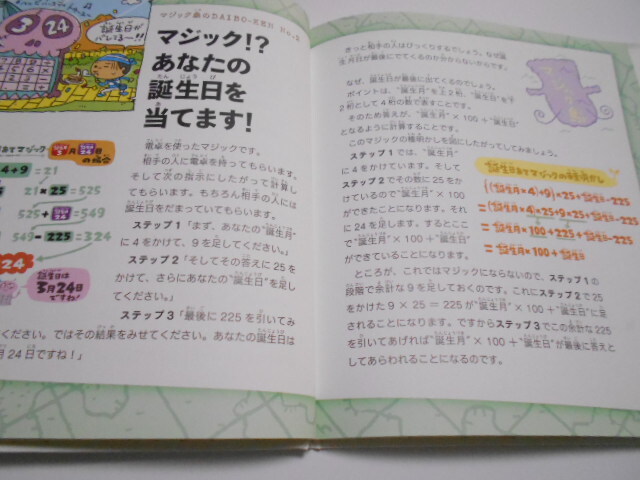 誕生日が
バレてる〜!!
3 24
マジック!?
あなたの
誕生日を
当てます!
3月 24日
の場合
4+9=21
21×25=525
525+24=549
549-225=324
24
誕生日は
3月24日
ですね!
電卓を使ったマジックです。
相手の人に電卓を持ってもらいます。
そして次の指示にしたがって計算し
てもらいます。もちろん相手の人には
誕生日をだまっていてもらいます。
ステップ1「まず、あなたの"誕生月"
に4をかけて、9を足してください。」
ステップ2「そしてその答えに25を
かけて、さらにあなたの"誕生日"を足し
てください。」
ステップ3「最後に225を引いてみ
ください。ではその結果をみせてください。あなたの誕生日は
月24日ですね!」
きっと相手の人はびっくりするでしょう。なぜ誕
生月日が最後にでてくるのかがわからないからです。
なぜ、誕生日が最後に出てくるのでしょう。
ポイントは、"誕生月"を上2桁、"誕生日"を下
2桁として4桁の数で表すことです。
そのため答えが、"誕生月"×100+"誕生日"
となるように計算することです。
このマジックの種明かしを図にしたがってしてみましょう。
ステップ1では、"誕生月"
に4をかけています。そして
ステップ2でその数に25をか
けているので"誕生月"×100
ができたことになります。それ
に24を足します。するとここ
で"誕生月"×100+"誕生日"が
できていることになります。
誕生日あてマジックの種明かし
((誕生月×4)+9)×25+誕生日-225
=(誕生月×4×25+9×25+誕生日-225
=誕生月×100+225+誕生日-225
=誕生月×100+誕生日
ところが、これではマジックにならないので、ステップ1の
段階で余計な9を足しておくのです。これにステップ2で25
をかけた9×25=225が"誕生月"×100+"誕生日"に足
されることになります。ですからステップ3でこの余計な225
を引いてあげれば"誕生月"×100+"誕生日"が最後に答えと
してあらわれることになるのです。